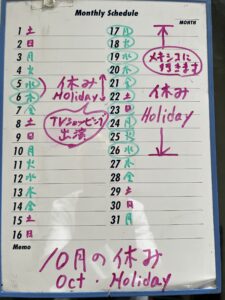 Monthly Schedule
MONTH
1 土
2 日
3 月
4 火
5 水
6 木
7 金
8 土
9 日
10 月
11 火
12 水
13 木
14 金
15 土
16 日
休み
Holiday
TVショッピング
出演
17 月
18 火
19 水
20 木
21 金
22 土
23 日
24 月
25 火
26 水
27 木
28 金
29 土
30 日
31 月
メキシコに
行きます
休み
Holiday
Memo
10月の休み
Oct. Holiday